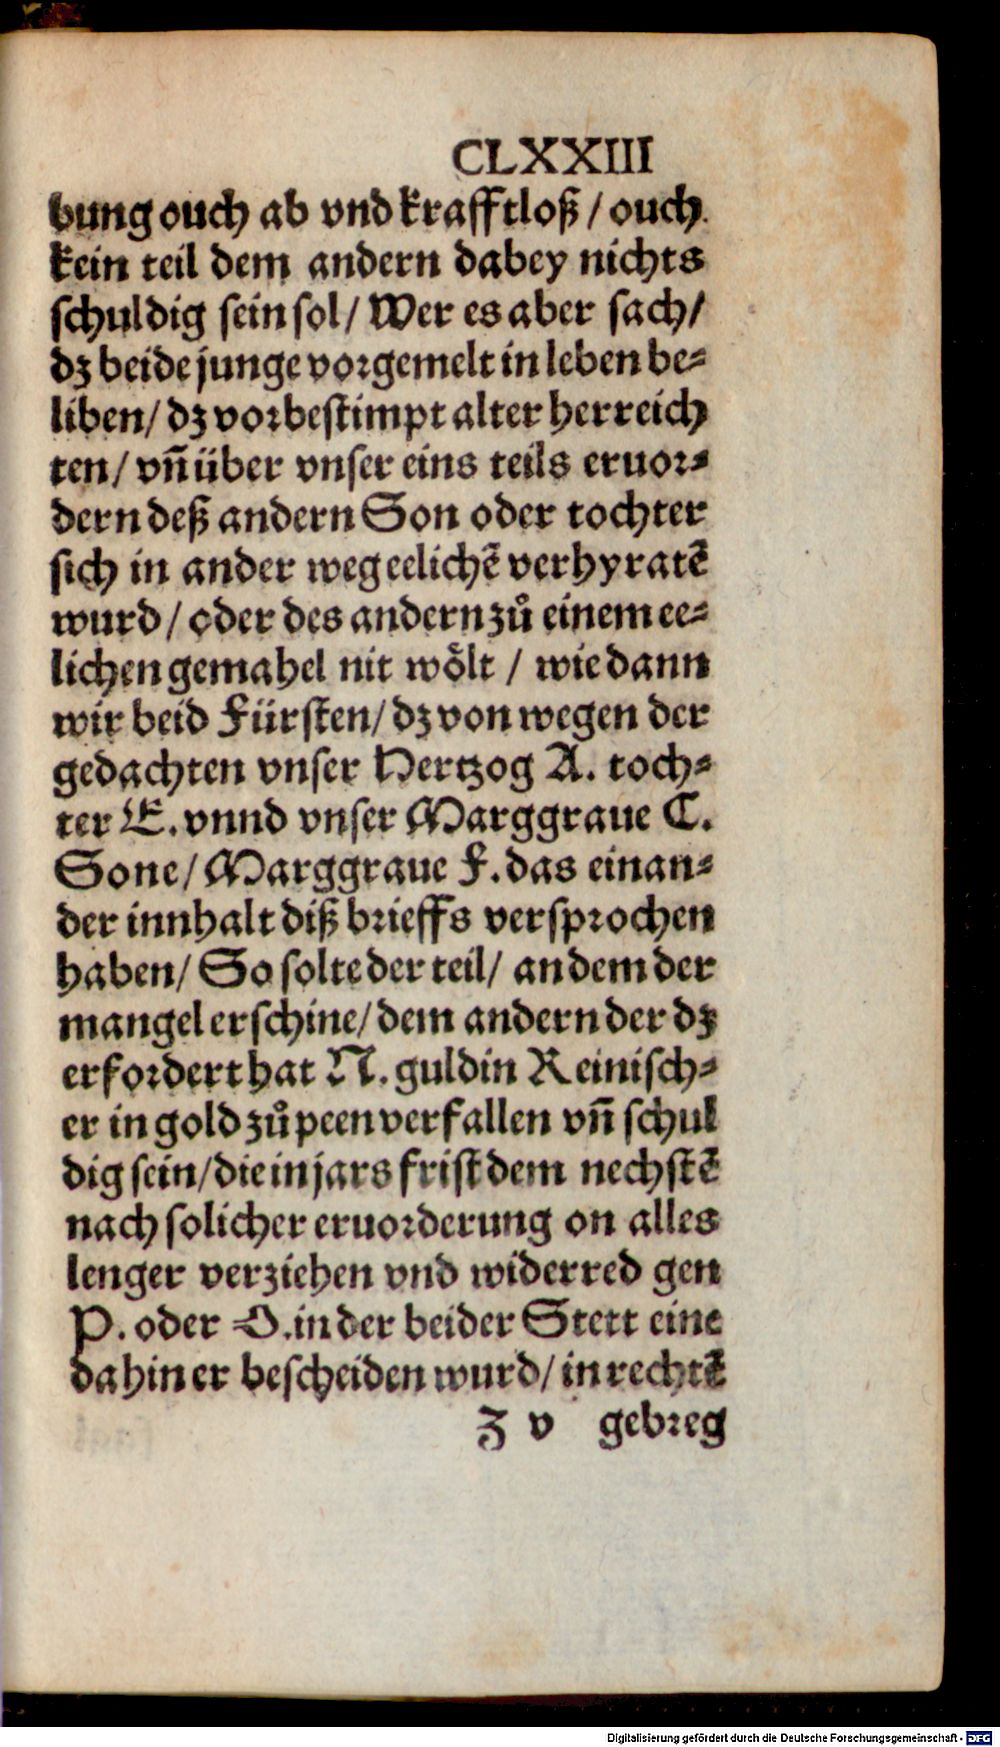 CLXXIII
bung ouch ab vnd krafftloß / ouch
kein teil dem andern dabey nichts
schuldig sein sol / Wer es aber sach /
dz beide junge vorgemelt in leben be⸗
liben / dz vorbestimpt alter herreich
ten / vn̄ über vnser eins teils eruor⸗
dern deß andern Son oder tochter
sich in ander weg eelichē verhyratē
wurd / oder des andern zů einem ee⸗
lichen gemahel nit woͤlt / wie dann
wir beid Fürsten / dz von wegen der
gedachten vnser Hertzog A. toch⸗
ter E. vnnd vnser Marggraue C.
Sone / Marggraue F. das einan⸗
der innhalt diß brieffs versprochen
haben / So solte der teil / an dem der
mangel erschine / dem andern der dz
erfordert hat N. guldin Reinisch⸗
er in gold zů peen verfallen vn̄ schul
dig sein / die in jars frist dem nechstē
nach solicher eruorderung on alles
lenger verziehen vnd widerred gen
P. oder O. in der beider Stett eine
dahin er bescheiden wurd / in rechtē
Z v gebreg
Digitalisierung gefördert durch die Deutsche Forschungsgemeinschaft - DFG